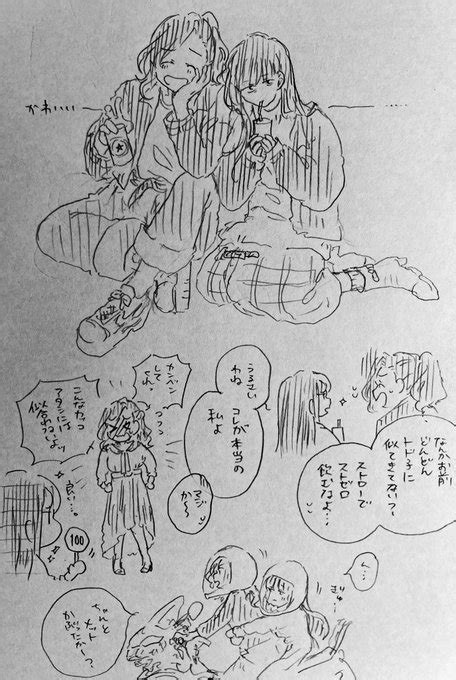 かわいい
なんかお前
どんどん
トド子に
似てきてない？
ストローで
ストゼロ
飲むなよ…
うるさい
わね
コレが本当の
私よ
マジ
か〜
カンベン
して
くれっ
こんなカッコ
アタシには
似合わねいよッ
良い…
100
へ…
ちゃんと
メット
かぶったか〜？